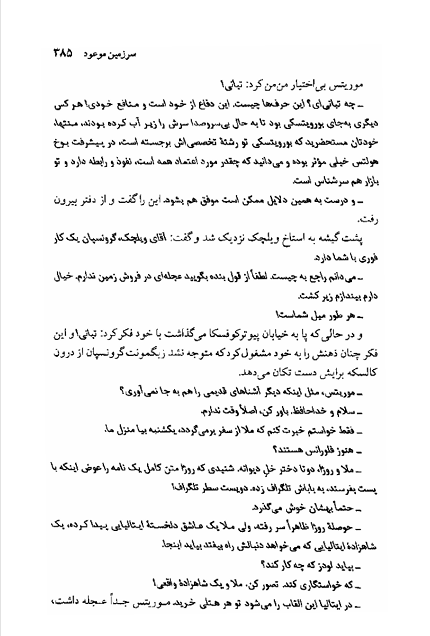 سرزمین موعود ۳۸۵
موریتس بی‌اختیار من‌من کرد: تبانی!
ـ چه تبانی‌ای؟ این حرف‌ها چیست. این دفاع از خود است و منافع خودی! هر کس
دیگری به‌جای بوروویتسکی بود تا به حال بی‌سروصدا سرش را زیر آب کرده بودند، منتها،
خودتان مستحضرید که بوروویتسکی تو رشتهٔ تخصصی‌اش برجسته است، در پیشرفت بوخ
هولتس خیلی مؤثر بوده و می‌دانید که چقدر مورد اعتماد همه است، نفوذ و رابطه دارد و تو
بازار هم سرشناس است.
ـ و درست به همین دلایل ممکن است موفق هم بشود. این را گفت و از دفتر بیرون
رفت.
پشت گیشه به استاخ ویلچک نزدیک شد و گفت: آقای ویلچک، گرونسپان یک کار
فوری با شما دارد.
ـ می‌دانم راجع به چیست. لطفاً از قول بنده بگویید عجله‌ای در فروش زمین ندارم. خیال
دارم بیندازم زیر کشت.
ـ هر طور میل شماست!
و در حالی که پا به خیابان پیوترکوفسکا می‌گذاشت با خود فکر کرد: تبانی! و این
فکر چنان ذهنش را به خود مشغول کرد که متوجه نشد زیگمونت گرونسپان از درون
کالسکه برایش دست تکان می‌دهد.
ـ موریتس، مثل اینکه دیگر آشناهای قدیمی را هم به جا نمی‌آوری؟
ـ سلام و خداحافظ. باور کن، اصلاً وقت ندارم.
ـ فقط خواستم خبرت کنم که ملا از سفر برمی‌گردد، یکشنبه بیا منزل ما.
ـ هنوز فلورانس هستند؟
ـ ملا و روزا، دو تا دختر خل دیوانه. شنیدی که روزا متن کامل یک نامه را عوض اینکه با
پست بفرستد، به باباش تلگراف زده. دویست سطر تلگراف!
ـ حتماً بهشان خوش می‌گذرد.
ـ حوصلهٔ روزا ظاهراً سر رفته، ولی ملا یک عاشق دلخستهٔ ایتالیایی پیدا کرده، یک
شاهزادهٔ ایتالیایی که می‌خواهد دنبالش راه بیفتد بیاید اینجا.
ـ بیاید لودز که چه کار کند؟
ـ که خواستگاری کند. تصور کن. ملا و یک شاهزادهٔ واقعی!
ـ در ایتالیا این القاب را می‌شود تو هر هتلی خرید. موریتس جداً عجله داشت،